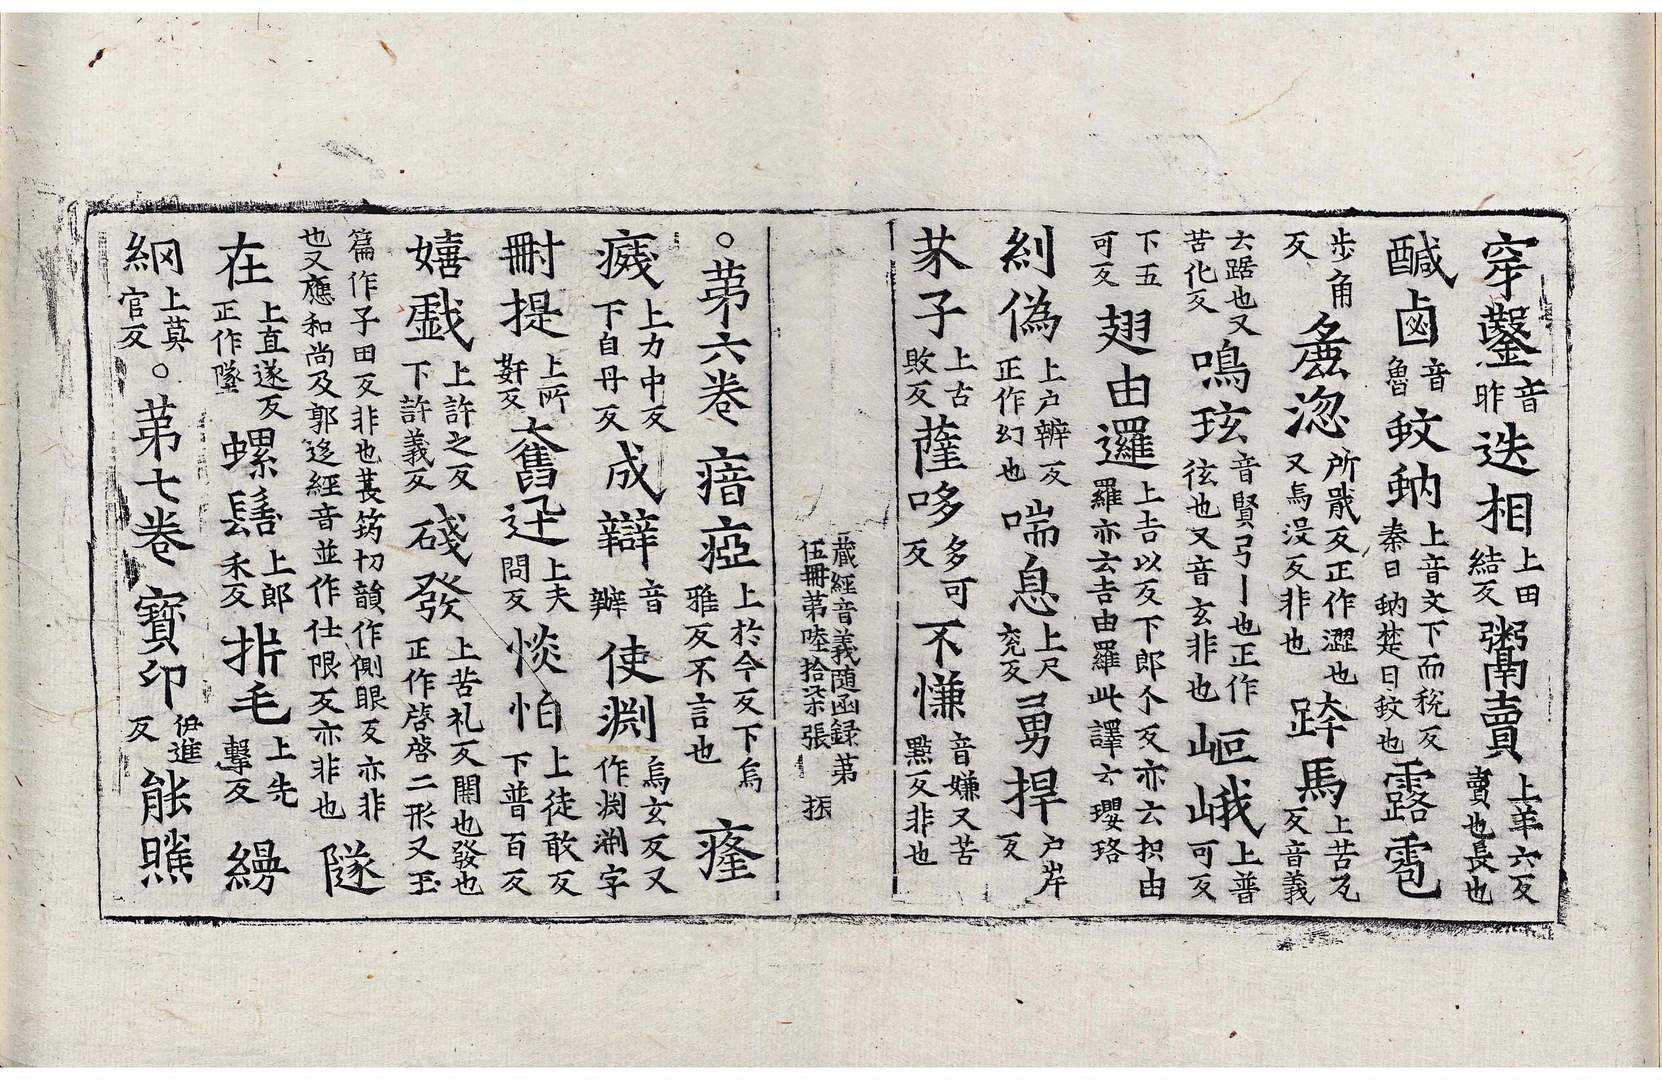 穿鑿音昨迭相上田結反粥賣上羊六反賣也長也
鹹鹵音魯蚊蚋上音文下而稅反秦曰蚋楚曰蚊也露雹
步角反麁澀所戢反正作澀也又烏没反非也跨馬上苦瓦反音義
云踞也又苦化反鳴玹音賢弓丨也正作弦也又音玄非也岠峨上普可反
下五可反翅由邏上吉以反下郎个反亦云抧由羅亦云吉由羅此譯云瓔珞
紖偽上户辦反正作幻也喘息上尺兖反勇捍户岸反
芥子上古敗反薩哆多可反不慊音嫌又苦點反非也
藏經音義随函録第伍冊第陸拾柒張 振
○第六卷瘖瘂上於今反下烏雅反不言也癃
癈上力中反下自丹反成辯音辦使淵烏玄反又作渕渊字
𠜂提上所姧反奮迅上夫問反惔怕上徒敢反下普百反
嬉戲上許之反下許義反䃰發上苦礼反開也發也正作啓啓二形又玉
篇作子田反非也萇筠切韻作側眼反亦非也又應和尚及郭迻經音並作仕限反亦非也隧
在上直遂反正作墜螺髻上郎禾反指毛上先擊反縵
網上莫官反○第七卷寳印伊進反能𤍠